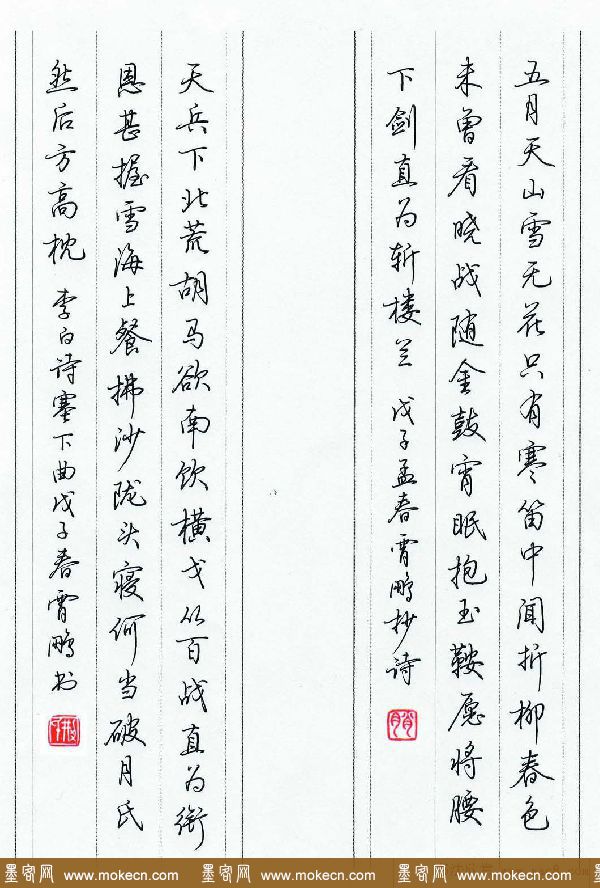 五月天山雪无花只有寒笛中闻折柳春色
未曾看晓战随金鼓宵眠抱玉鞍愿将腰
下剑直为斩楼兰 戊子孟春霄鹏抄诗
天兵下北荒胡马欲南饮横戈从百战直为衔
恩甚握雪海上餐拂沙陇头寝何当破月氏
然后方高枕 李白诗塞下曲戊子春霄鹏书
墨客网 www.mokecn.com 墨客网 www.mokecn.com 墨客网 www.mokecn.com